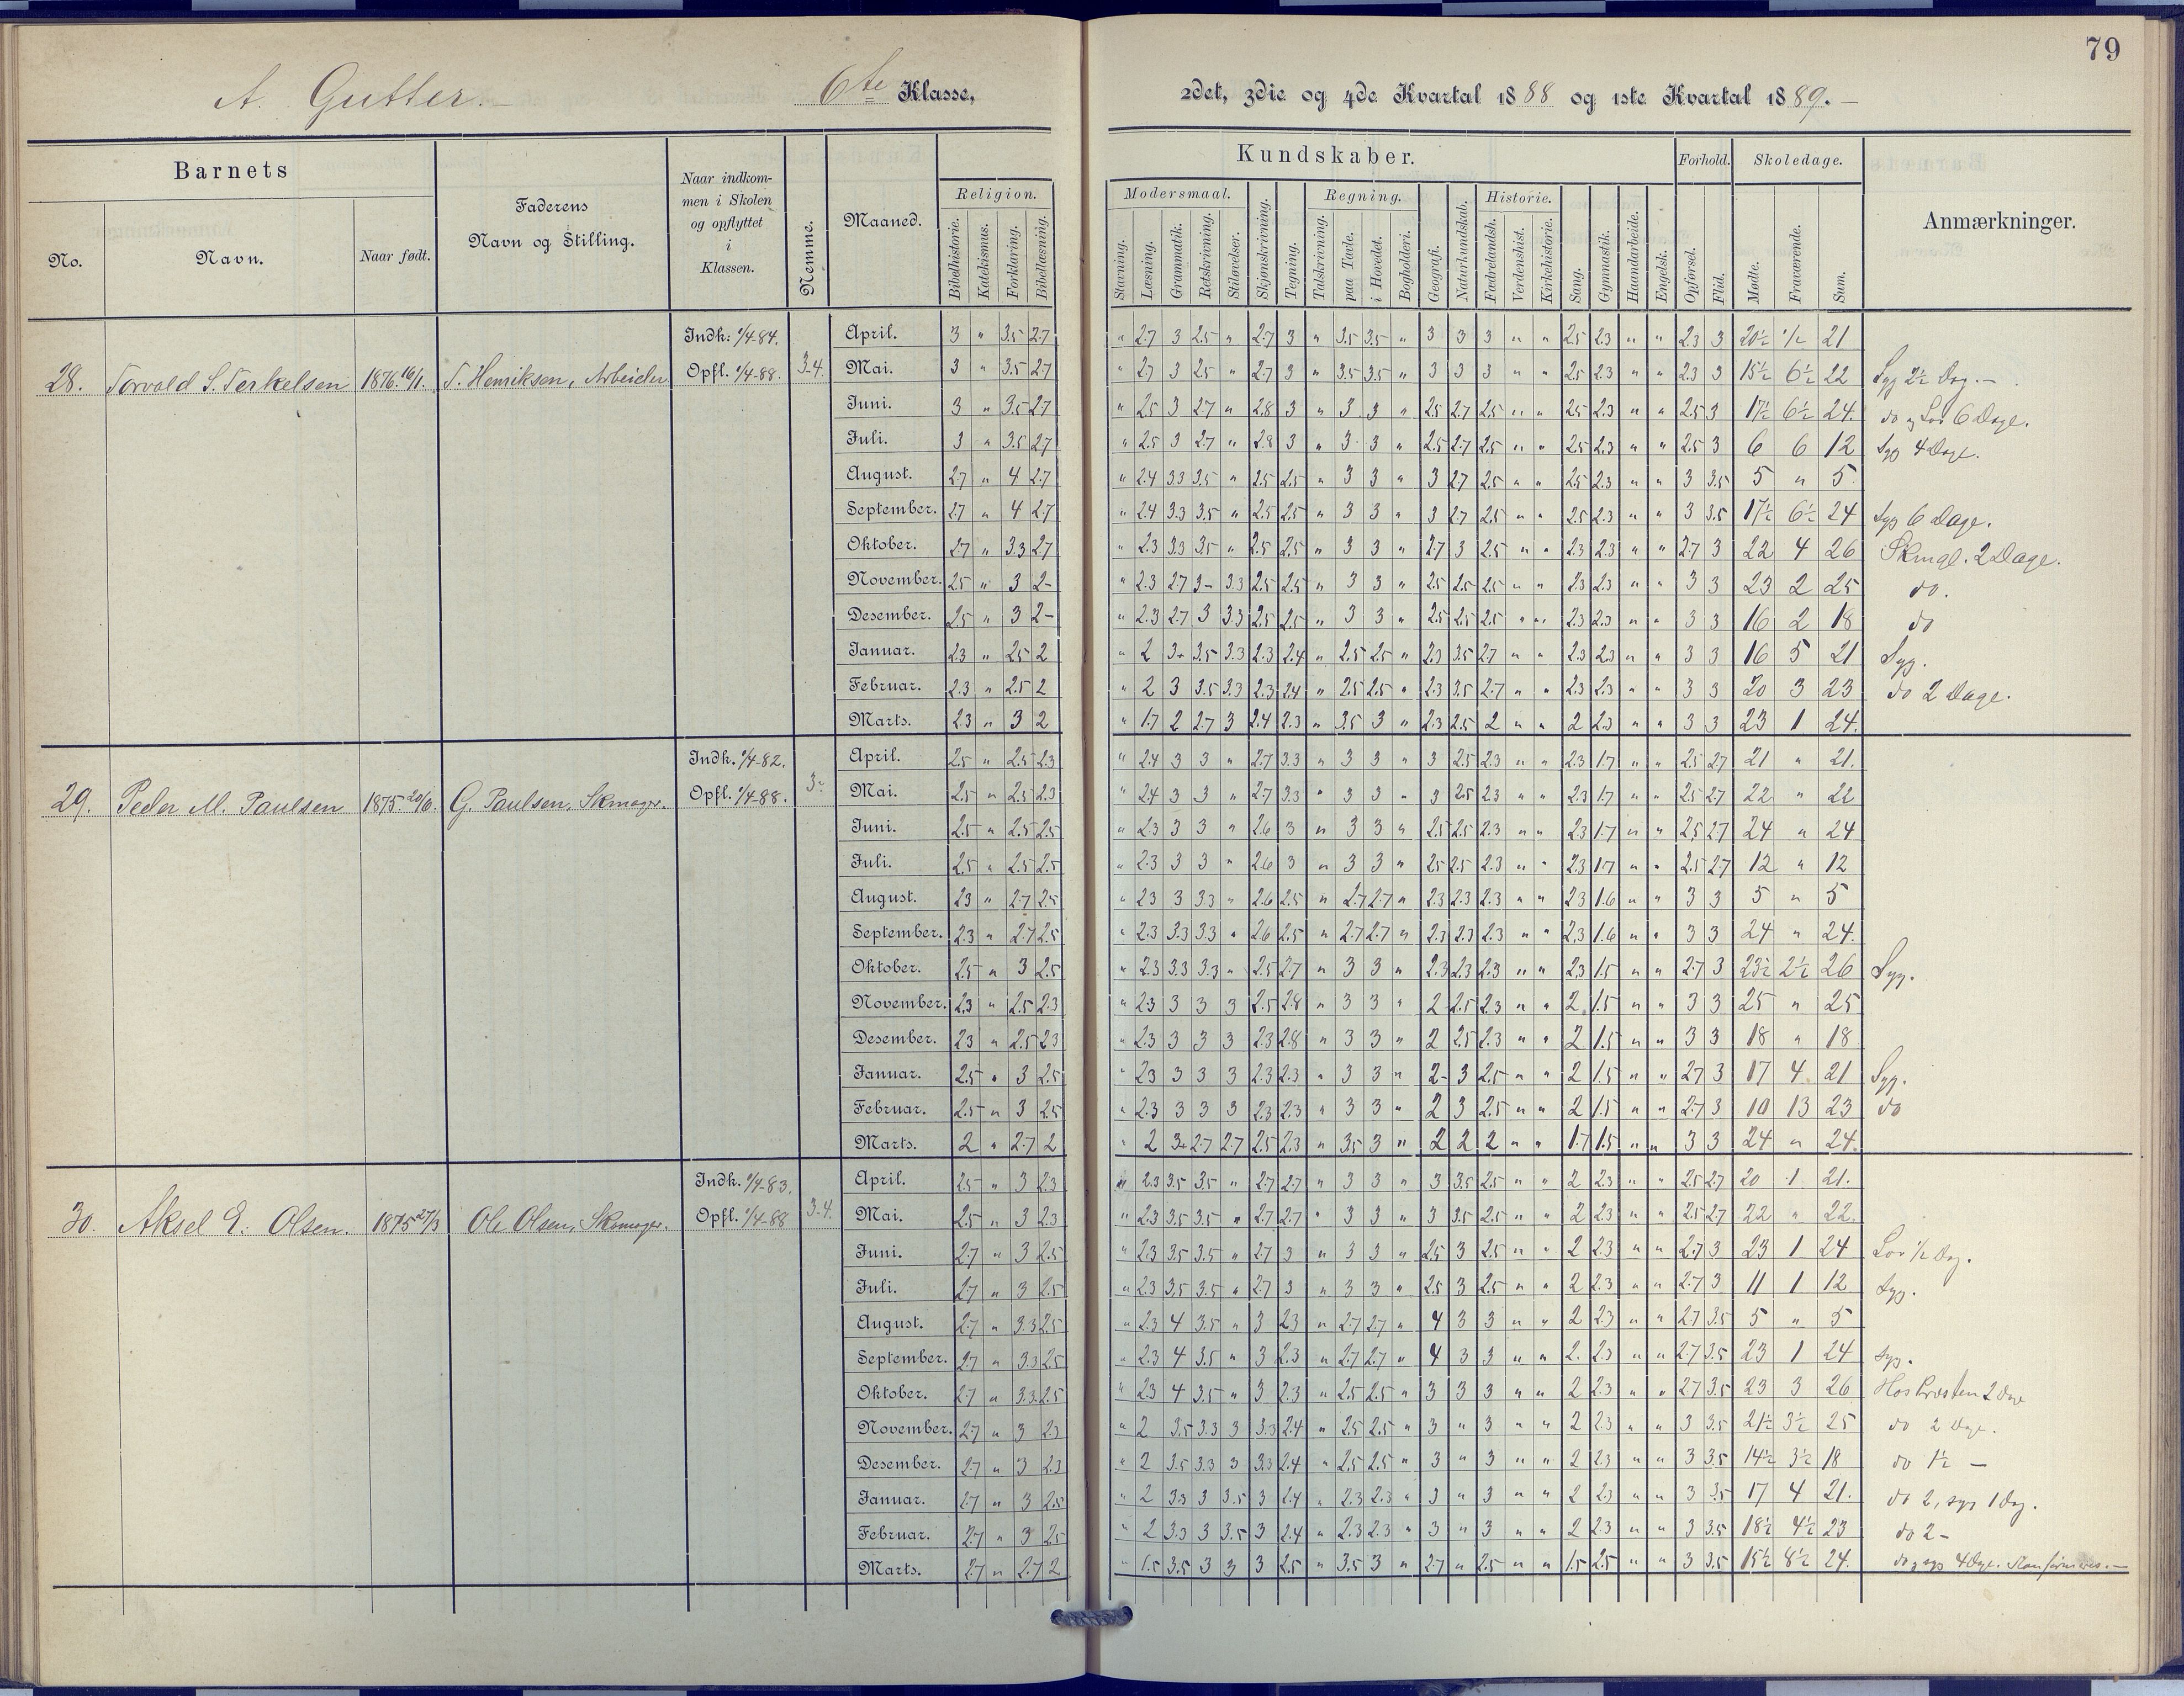 79
A. Gutter. 6te Klasse, 2det, 3die og 4de Kvartal 1888 og 1ste Kvartal 1889.
Barnets
No.
Navn.
Naar født.
Faderens
Navn og Stilling.
Naar indkom-
men i Skolen
og opflyttet
i
Klassen.
Nemme.
Maaned.
Kundskaber.
Religion.
Bibelhistorie.
Katekismus.
Forklaring.
Bibellæsning.
Modersmaal.
Stavning.
Læsning.
Grammatik.
Retskrivning.
Stiløvelser.
Skjønskrivning.
Tegning.
Regning.
Talskrivning.
paa Tavle.
i Hovedet.
Bogholderi.
Geografi.
Naturkundskab.
Historie.
Fædrelandsh.
Verdenshist.
Kirkehistorie.
Sang.
Gymnastik.
Haandarbeide.
Engelsk.
Forhold.
Opførsel.
Flid.
Skoledage.
Mødte.
Fraværende.
Sum.
Anmærkninger.
28. Torvald S. Terkelsen 1876.16/1. T. Henriksen, Arbeider Indk. 1/4-84. Opfl. 1/4-88. 3-4.
April. 3 " 3.5 2.7 " 2.7 3 2.5 " 2.7 3 " 3.5 3.5 " 3 3 3 " " 2.5 2.3 " " 2.3 3 20½ 1/2 21
Mai. 3 " 3.5 2.7 " 2.7 3 2.5 " 2.7 3 " 3.5 3.5 " 3 3 3 " " 2.5 2.3 " " 2.3 3 15½ 6½ 22 Syg 2½ Dag.
Juni. 3 " 3.5 2.7 " 2.5 3 2.7 " 2.8 3 " 3 3 " 2.5 2.7 2.5 " " 2.5 2.3 " " 2.5 3 17½ 6½ 24. do og Lov 6 Dage.
Juli. 3 " 3.5 2.7 " 2.5 3 2.7 " 2.8 3 " 3 3 " 2.5 2.7 2.5 " " 2.5 2.3 " " 2.5 3 6 6 12 Syg 4 Dage.
August. 2.7 " 4 2.7 " 2.4 3.3 3.5 " 2.5 2.5 " 3 3 " 3 2.7 2.5 " " 2.5 2.3 " " 3 3.5 5 " 5
September. 2.7 " 4 2.7 " 2.4 3.3 3.5 " 2.5 2.5 " 3 3 " 3 2.7 2.5 " " 2.5 2.3 " " 3 3.5 17½ 6½ 24 Syg 6 Dage.
Oktober. 2.7 " 3.3 2.7 " 2.3 3.3 3.5 " 2.5 2.5 " 3 3 " 2.7 3 2.5 " " 2.3 2.3 " " 2.7 3 22 4 26 Skmgl. 2 Dage.
November. 2.5 " 3 2- " 2.3 2.7 3- 3.3 2.5 2.5 " 3 3 " 2.5 2.5 2.5 " " 2.3 2.3 " " 3 3 23 2 25 do.
Desember. 2.5 " 3 2- " 2.3 2.7 3 3.3 2.5 2.5 " 3 3 " 2.5 2.5 2.5 " " 2.3 2.3 " " 3 3 16 2 18 do
Januar. 2.3 " 2.5 2 " 2 3+ 3.5 3.3 2.3 2.4 " 2.5 2.5 " 2.3 3.5 2.7 " " 2.3 2.3 " " 3 3 16 5 21 Syg.
Februar. 2.3 " 2.5 2 " 2 3 3.5 3.3 2.3 2.4 " 2.5 2.5 " 2.3 3.5 2.7 " " 2.3 2.3 " " 3 3 20 3 23 do 2 Dage.
Marts. 2.3 " 3 2 " 1.7 2 2.7 3 2.4 2.3 " 3.5 3 " 2.3 2.5 2 " " 2 2.3 " " 3 3 23 1 24.
29. Peder M. Paulsen 1875. G. Paulsen, Skmager. Indk. 1/4-82. Opfl. 1/4-88. 3-
April. 2.5 " 2.5 2.3 " 2.4 3 3 " 2.7 3.3 " 3 3 " 3 2.5 2.3 " " 2.3 1.7 " " 2.5 2.7 21 " 21.
Mai. 2.5 " 2.5 2.3 " 2.4 3 3 " 2.7 3.3 " 3 3 " 3 2.5 2.3 " " 2.3 1.7 " " 2.5 2.7 22 " 22
Juni. 2.5 " 2.5 2.5 " 2.3 3 3 " 2.6 3 " 3 3 " 2.5 2.5 2.3 " " 2.3 1.7 " " 2.5 2.7 24 " 24
Juli. 2.5 " 2.5 2.5 " 2.3 3 3 " 2.6 3 " 3 3 " 2.5 2.5 2.3 " " 2.3 1.7 " " 2.5 2.7 12 " 12
August. 2.3 " 2.7 2.5 " 2.3 3 3.3 " 2.6 2.5 " 2.7 2.7 " 2.3 2.3 2.3 " " 2.3 1.6 " " 3 3 5 " 5
September. 2.3 " 2.7 2.5 " 2.3 3.3 3.3 " 2.6 2.5 " 2.7 2.7 " 2.3 2.3 2.3 " " 2.3 1.6 " " 3 3 24 " 24.
Oktober. 2.5 " 3 2.5 " 2.3 3.3 3.3 " 2.5 2.7 " 3 3 " 2.3 2.3 2.3 " " 2.3 1.5 " " 2.7 3 23½ 2½ 26 Syg.
November. 2.3 " 2.5 2.3 " 2.3 3 3 3 2.5 2.8 " 3 3 " 2 2.5 2.3 " " 2. 1.5 " " 3 3 25 " 25
Desember. 2.3 " 2.5 2.3 " 2.3 3 3 3 2.3 2.8 " 3 3 " 2 2.5 2.3 " " 2 1.5 " " 3 3 18 " 18
Januar. 2.5 " 3 2.5 " 2.3 3 3 3 2.3 2.3 " 3 3 " 2- 3 2.5 " " 2 1.5 " " 2.7 3 17 4 21 Syg.
Februar. 2.5 " 3 2.5 " 2.3 3 3 3 2.3 2.3 " 3 3 " 2 3 2.5 " " 2 1.5 " " 2.7 3 10 13 23 do
Marts. 2 " 2.7 2 " 2 3+ 2.7 2.7 2.5 2.3 " 3.5 3 " 2 2 2 " " 1.7 1.5 " " 3 3 24 " 24.
30. Aksel E. Olsen. 1875 27/3 Ole Olsen, Skomager. Indk. 1/4-83. Opfl. 1/4-88 3-4.
April. 2.5 " 3 2.3 " 2.3 3.5 3.5 " 2.7 2.7 " 3 3 " 3 3.5 2.5 " " 2 2.3 " " 2.5 2.7 20 1 21.
Mai. 2.5 " 3 2.3 " 2.3 3.5 3.5 " 2.7 2.7 " 3 3 " 3 3.5 2.5 " " 2 2.3 " " 2.5 2.7 22 " 22.
Juni. 2.7 " 3 2.5 " 2.3 3.5 3.5 " 2.7 3 " 3 3 " 2.5 3 2.5 " " 2 2.3 " " 2.7 3 23 1 24 Lov 1/2 Dag.
Juli. 2.7 " 3 2.5 " 2.3 3.5 3.5 " 2.7 3 " 3 3 " 2.5 3 2.5 " " 2 2.3 " " 2.7 3 11 1 12 Syg.
August. 2.7 " 3.3 2.5 " 2.3 4 3.5 " 3 2.3 " 2.7 2.7 " 4 3 3 " " 2 2.3 " " 2.7 3.5 5 " 5
September. 2.7 " 3.3 2.5 " 2.3 4 3.5 " 3 2.3 " 2.7 2.7 " 4 3 3 " " 2. 2.3 " " 2.7 3.5 23 1 24 Syg.
Oktober. 2.7 " 3.3 2.5 " 2.3 4 3.5 " 3 2.3 " 2.5 2.5 " 3 3 3 " " 2 2.3 " " 2.7 3.5 23 3 26 Hos Præsten 2 Dage
November. 2.7 " 3 2.3 " 2 3.5 3.3 3 3.3 2.4 " 2.5 2.5 " 3 " 3 " " 2 2.3 " " 3 3.5 21½ 3½ 25 do 2 Dage.
Desember. 2.7 " 3 2.3 " 2 3.5 3.3 3 3.3 2.4 " 2.5 2.5 " 3 " 3 " " 2 2.3 " " 3 3.5 14½ 3½ 18 do 1½ -
Januar. 2.7 " 3 2.5 " 2 3.3 3 3.5 3 2.4 " 2.3 2.3 " 3 " 3 " " 2 2.3 " " 3 3.5 17 4 21. do 2, syg 1 Dag.
Februar. 2.7 " 3 2.5 " 2 3.3 3 3.5 3 2.4 " 2.3 2.3 " 3 " 3 " " 2 2.3 " " 3 3.5 18½ 4½ 23 do 2 -
Marts. 2.7 " 2.7 2 " 1.5 3.5 3 3 3 2.5 " 3.5 3 " 2.7 " 2.5 " " 1.5 2.5 " " 3 3.5 15½ 8½ 24. do og syg 4 Dage. Konfirmeres.